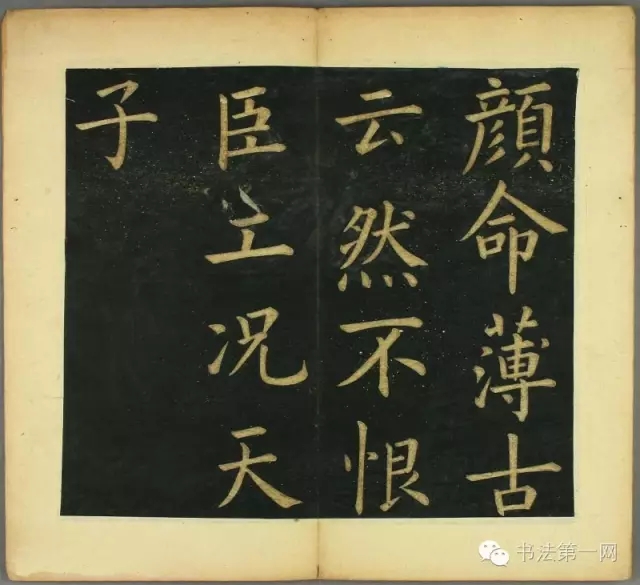 顔命薄古
云然不恨
臣工况天
子
书法第一网